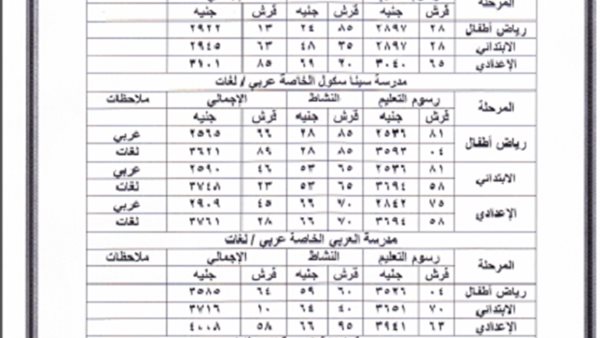 المرحلة قرش جنيه قرش جنيه قرش جنيه
رياض أطفال ٢٨ ٢٨٩٧ ٨٥ ٢٤ ١٣ ٢٩٢٢
الابتدائي ٢٨ ٢٨٩٧ ٣٥ ٤٨ ٦٣ ٢٩٤٥
الإعدادي ٦٥ ٣٠٤٠ ٢٠ ٨٥ ٣١٠١
مدرسة سينا سكول الخاصة عربي / لغات
المرحلة رسوم التعليم النشاط الإجمالي ملاحظات
قرش جنيه قرش جنيه قرش جنيه
رياض أطفال ٨١ ٢٥٣٦ ٨٥ ٢٨ ٦٦ ٢٥٦٥ عربي
٠٤ ٣٥٩٣ ٨٥ ٢٨ ٨٩ ٣٦٢١ لغات
الابتدائي ٨١ ٢٥٣٦ ٦٥ ٥٣ ٤٦ ٢٥٩٠ عربي
٥٨ ٣٦٩٤ ٦٥ ٥٣ ٢٣ ٣٧٤٨ لغات
الإعدادي ٧٥ ٢٨٤٢ ٧٠ ٦٦ ٤٥ ٢٩٠٩ عربي
٥٨ ٣٦٩٤ ٧٠ ٦٦ ٢٨ ٣٧٦١ لغات
مدرسة العربي الخاصة عربي / لغات
المرحلة رسوم التعليم النشاط الإجمالي ملاحظات
قرش جنيه قرش جنيه قرش جنيه
رياض أطفال ٠٤ ٣٥٢٦ ٦٠ ٥٩ ٦٤ ٣٥٨٥
الابتدائي ٧٠ ٣٦٥١ ٤٠ ٦٤ ١٠ ٣٧١٦
الإعدادي ٦٣ ٣٩٤١ ٩٥ ٦٦ ٥٨ ٤٠٠٨